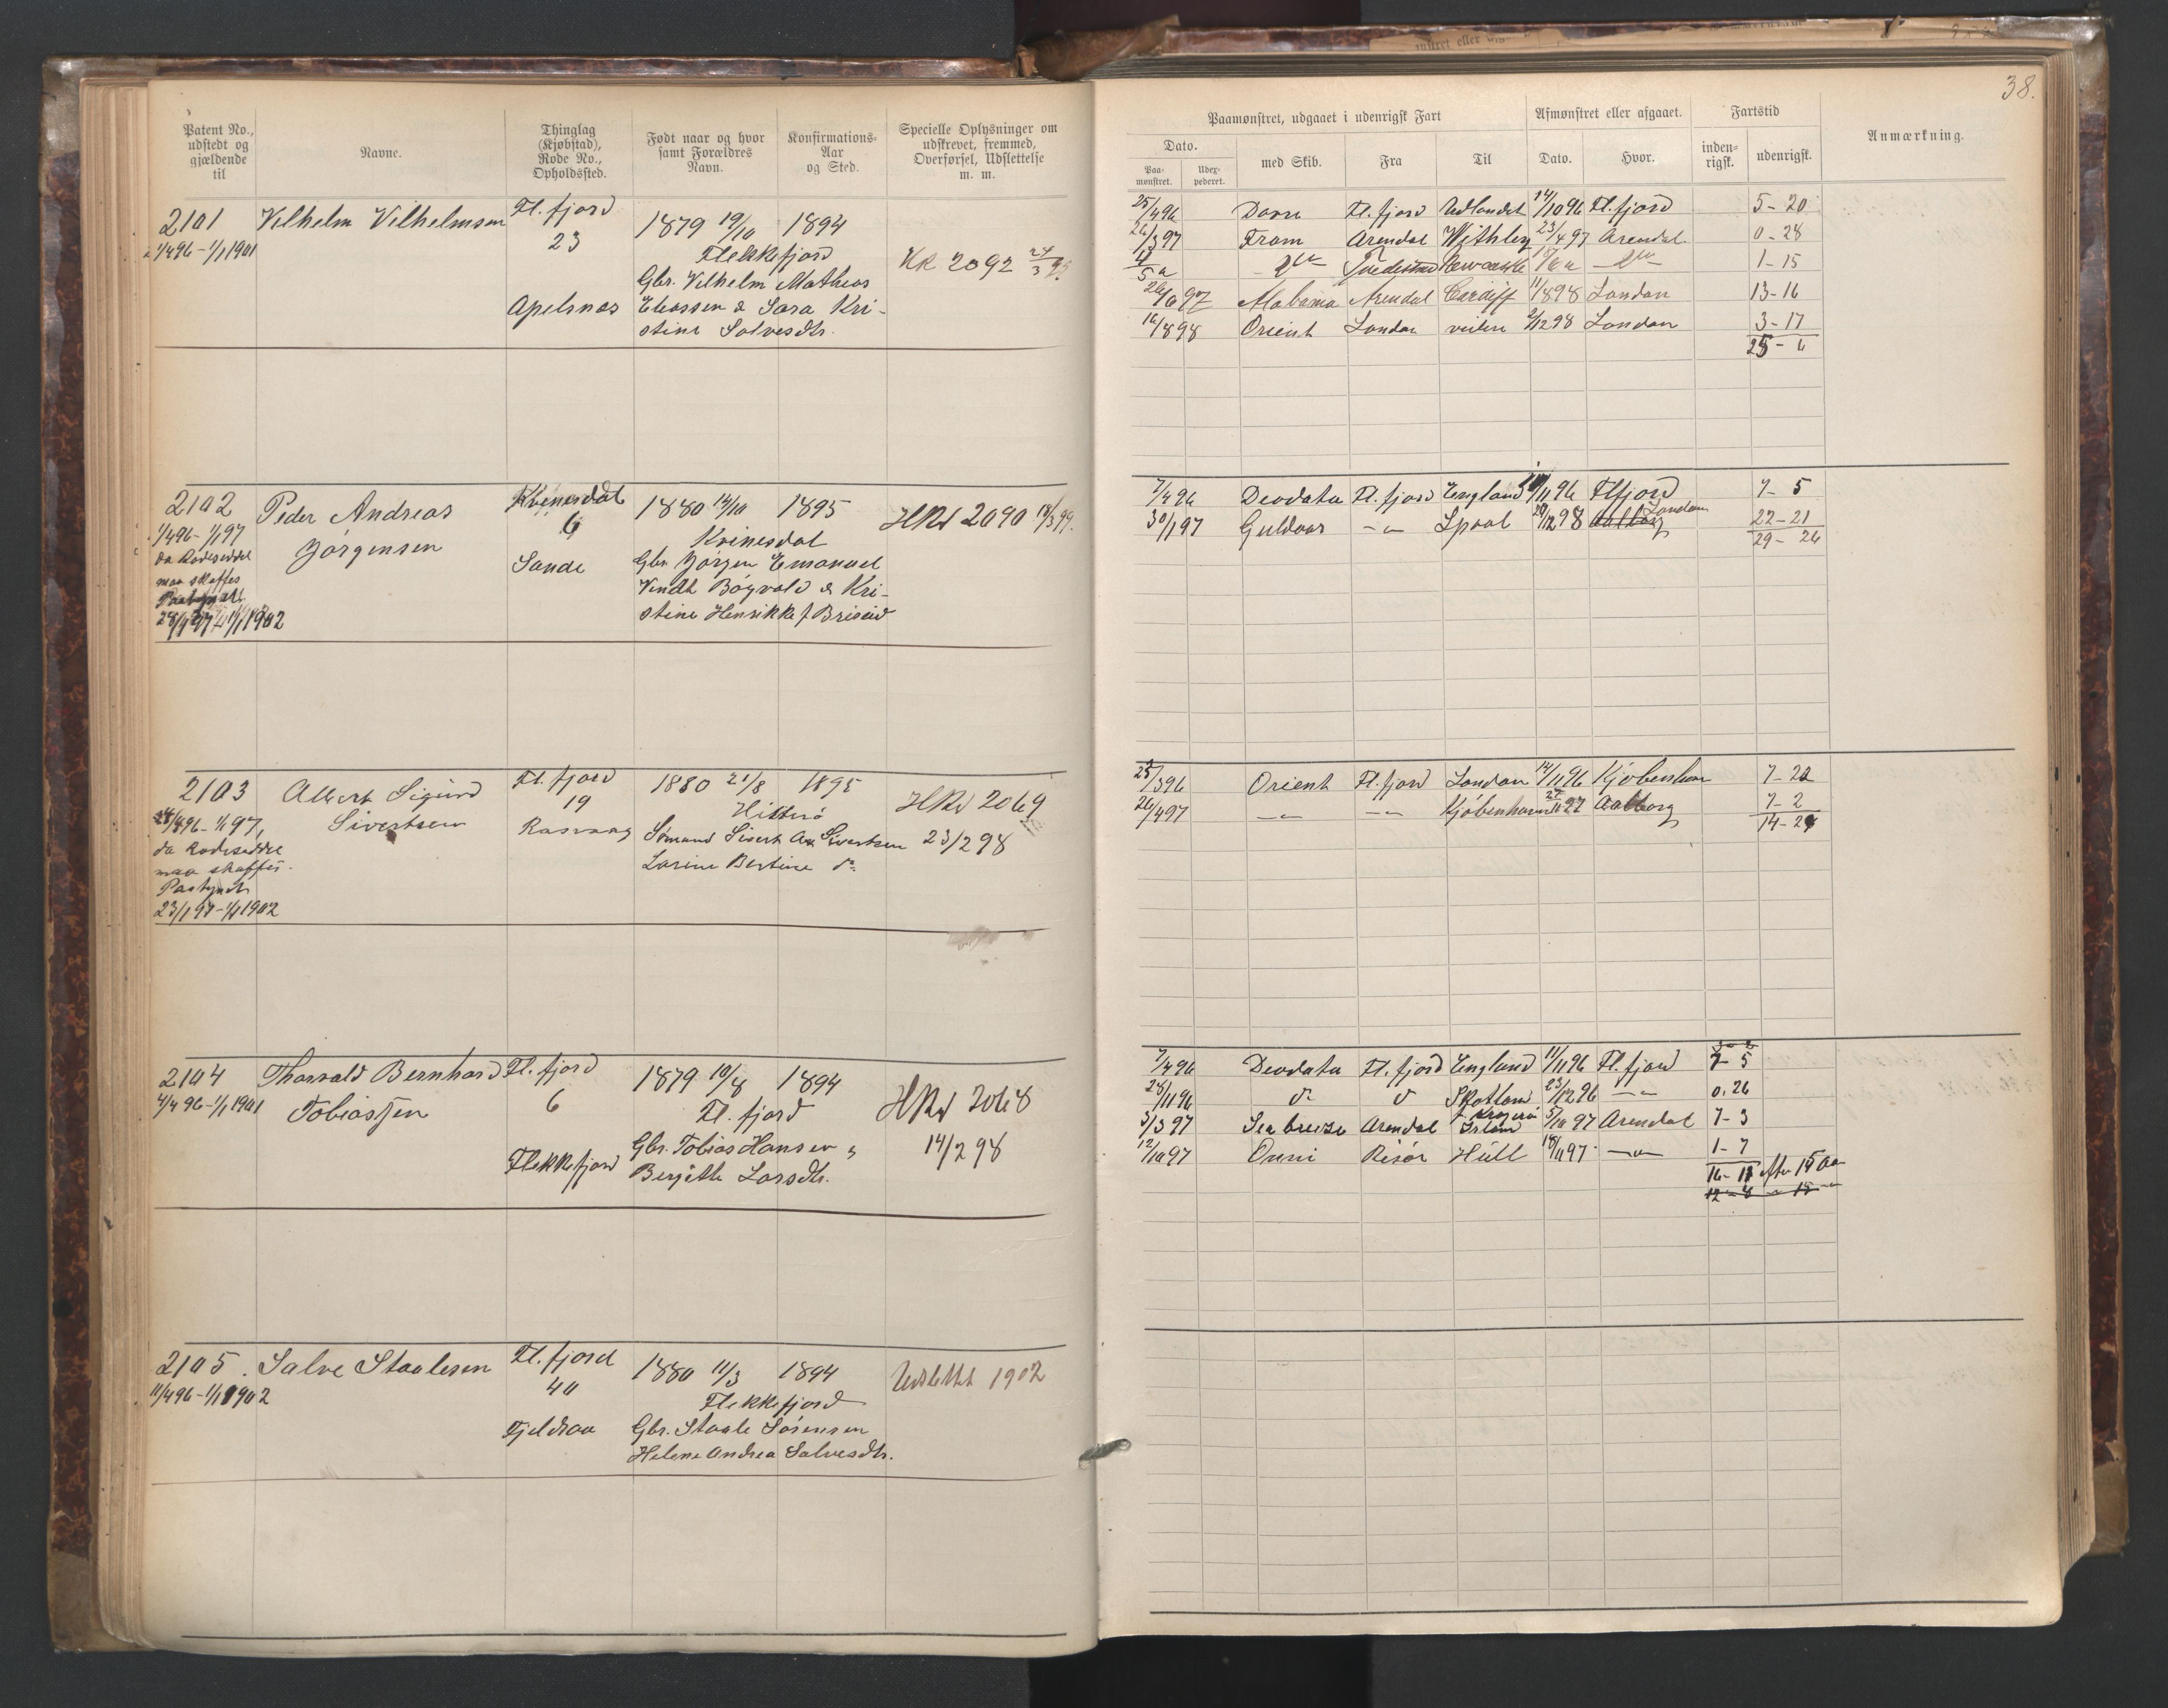 38.
Patent No., udstedt og gjældende til
Navne.
Thinglag (Kjøbstad), Rode No., Opholdssted.
Født naar og hvor samt Forældres Navn.
Konfirmations-Aar og Sted.
Specielle Oplysninger om udskrevet, fremmed, Overførsel, Udslettelse m. m.
Paamønstret, udgaaet i udenrigsk Fart
Afmønstret eller afgaaet.
Fartstid
Anmærkning.
Dato.
med Skib.
Fra
Til
Dato.
Hvor.
inden-rigsk.
udenrigsk.
Paa-mønstret.
Udex-pederet.
2101 Vilhelm Vilhelmsen Fl. fjord 1879 19/10 1894
23
Flekkefjord
KR 2092
Apelsnas
Gbr. Vilhelm Mathias
Eliassen & Sara Kri-
stine Salvesdtr.
25/4 96 Fl. fjord Udlandet 14/10 96 Fl. fjord 5-20
26/3 97 Fram Arendal Withby 23/4 97 Arendal 0-28
Newcastle 1-15
Alabama Arendal Cardiff 11/8 98 London 13-16
16/8 98 Orient London 2/12 98 London 3-17
25-6
2102 Peder Andreas Jørgensen Kvinesdal 1880 14/10 1895 HRd 2090 18/3 99.
1/4 96 - 1/1 97
da Rodeseddel
maa skaffes
6
Kvinesdal
Sande
Gbr. Jørgen Emanuel
Vendt Bøgvald & Kri-
stine Henrikke f Briseid
7/4 96 Deodata Fl. fjord England 11/11 96 Flfjord 7-5
30/1 97 Guldaas -"- 98 London 22-21
29-26
2103 Albert Sigurd Sivertsen Fl. fjord 1880 21/8 1895 HRd 2069
19
Hitterø
23/2 98
da Rodeseddel
maa skaffes.
23/1 97 - 1/1 1902
Rasvaag
Sømand Sivert Ax Sivertsen
Larine Bertine do
25/3 96 Orient Fl. fjord London 14/11 96 Kjøbenhavn
26/4 97 -"- -"- Kjøbenhavn 97 Aalborg 7-2
2104 Thorvald Bernhard Tobiassen Fl. fjord 1879 10/8 1894 HRd 2068
4/4 96 - 1/1 1901
6
Fl. fjord
14/2 98
Flekkefjord
Gbr. Tobias Hansen &
Berjithe Larsdtr.
7/4 96 Deodata Fl. fjord England 11/11 96 Fl. fjord 7-5
28/11 96 do do Skotland 23/12 96 -"- 0.26
3/3 97 Sea breeze Arendal Irland 5/10 97 Arendal 7-3
12/10 97 Onni Risør Hull 18/11 97 -"- 1-7
16-11 efter 15 Aar
12-8 - 15 -"-
2105 Salve Staalesen Fl. fjord 1880 11/3 1894 Udslettet 1902
11/4 96 - 1/1 1902
40
Flekkefjord
Fjeldsaa
Gbr. Staale Sørensen
Helene Andrea Salvesdtr.